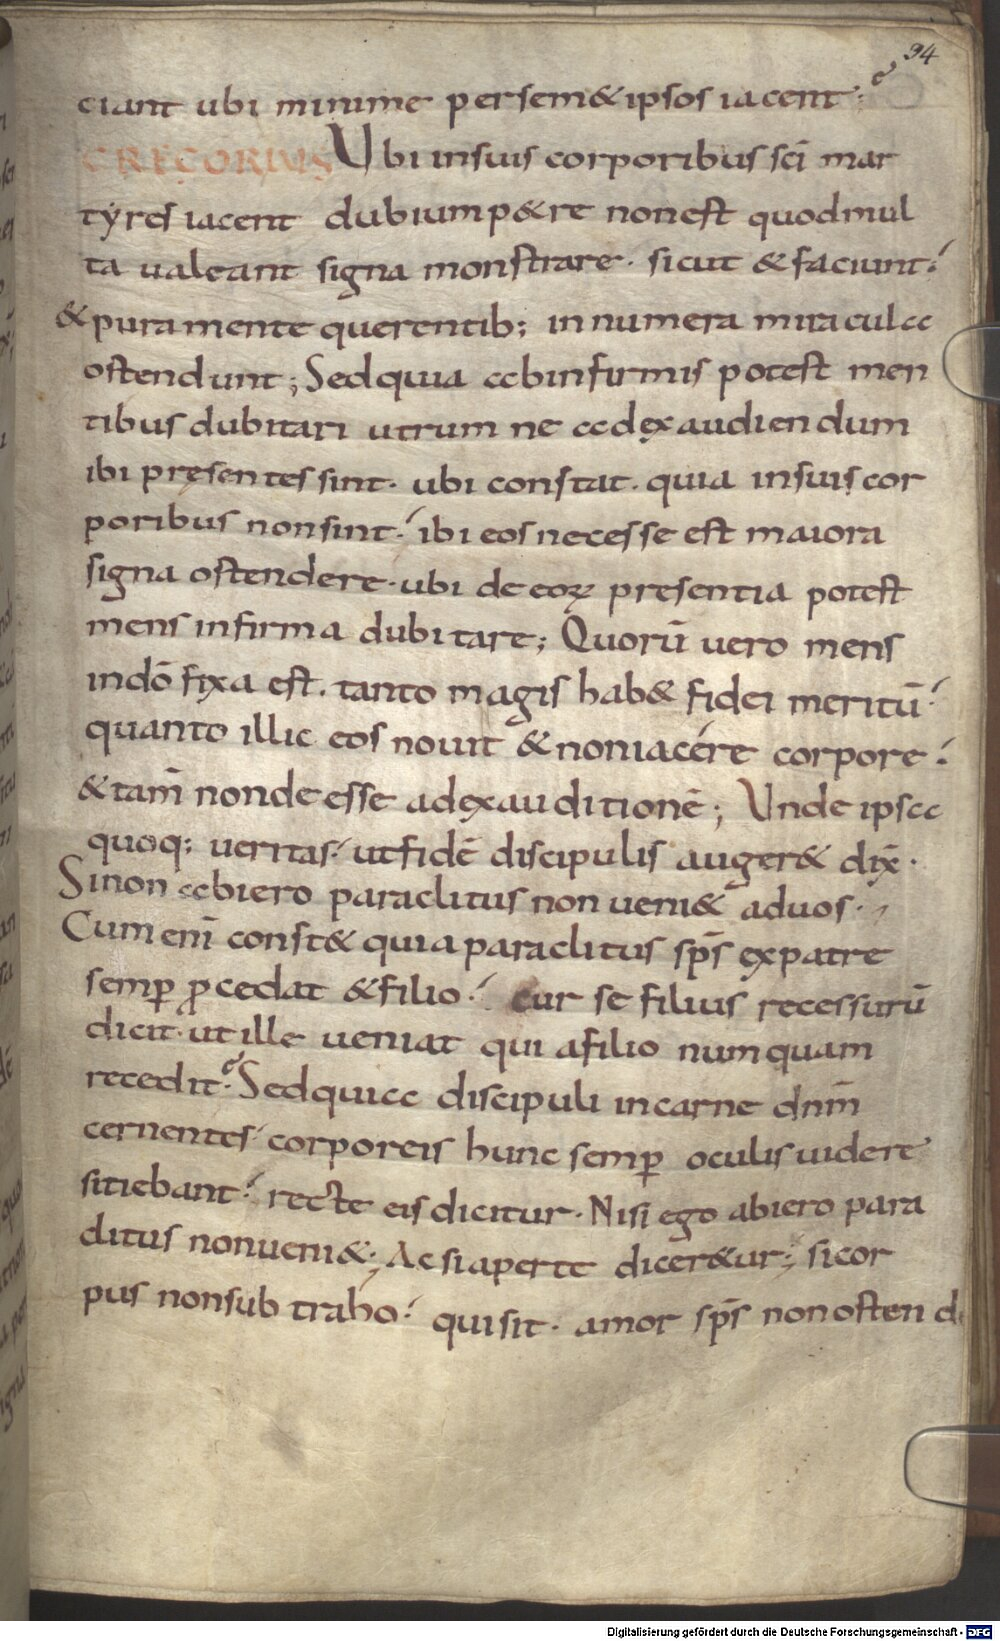 94
ciant ubi minime per sem&ipsos iacent
GREGORIUS Ubi in suis corporibus sc̄i mar
tyres iacent dubium p&re non est quod mul
ta ualeant signa monstrare· sicut & faciunt
& pura mente querentib; innumera miracula
ostendunt; Sed quia ab infirmis potest men
tibus dubitari utrum ne ad exaudiendum
ibi presentes sint· ubi constat· quia in suis cor
poribus non sint· ibi eos necesse est maiora
signa ostendere· ubi de eoꝝ presentia potest
mens infirma dubitare; Quorū vero mens
in dō fixa est· tanto magis hab& fidei meritū·
quanto illic eos nouit & non iacere corpore·
& tam̄ non deesse ad exauditionē; Unde ipsa
quoq; ueritas· ut fidē discipulis auger& dix̄·
Si non abiero paraclitus non ueni& ad uos·
Cum enī const& quia paraclitus sp̄s ex patre
semꝑ ꝓcedat & filio· cur se filius recessurū
dicit· ut ille ueniat qui a filio numquam
recedit· Sed quia discipuli in carne dn̄m
cernentes corporeis hunc semꝑ oculis uidere
sitiebant· recte eis dicitur· Nisi ego abiero para
clitus non ueni&· Ac si aperte dicer&ur; si cor
pus non subtraho· qui sit· amor sp̄s non ostend
Digitalisierung gefördert durch die Deutsche Forschungsgemeinschaft - DFG